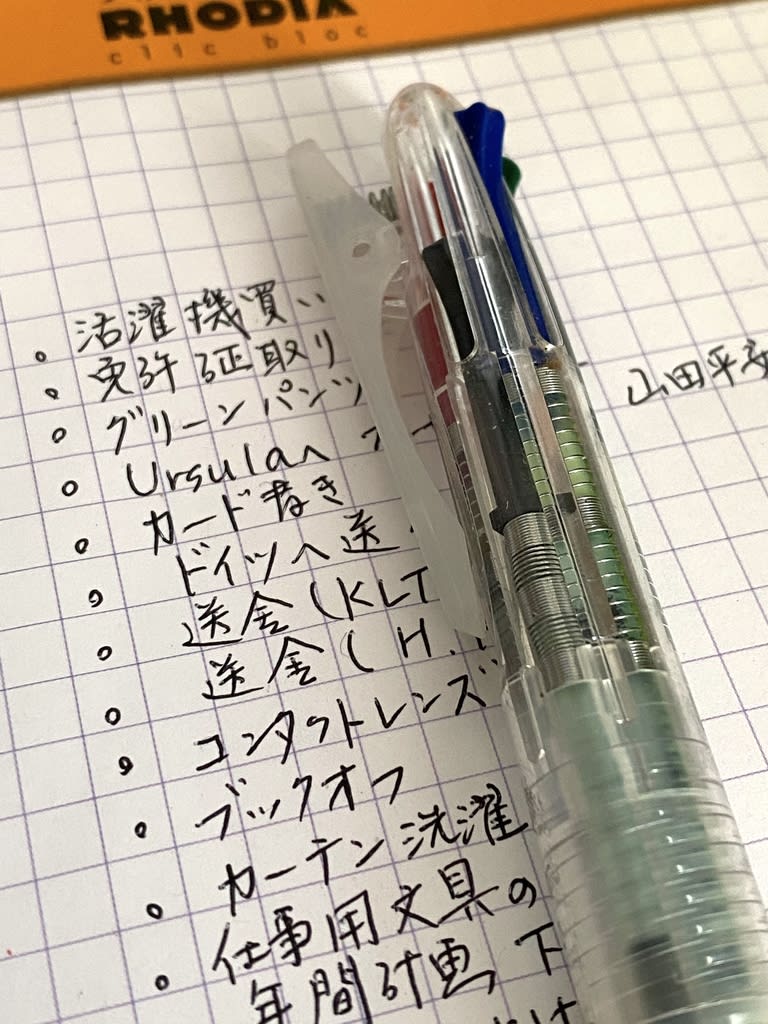 RHODIA
clic bloc
活濯機買い
免許証取り
山田平安
グリーンパンツ
Ursulaへ
カード書き
ドイツへ送
送金(KLT
送金(H.
コンタクトレンズ
ブックオフ
カーテン洗濯
仕事用文具の
年間計画 下